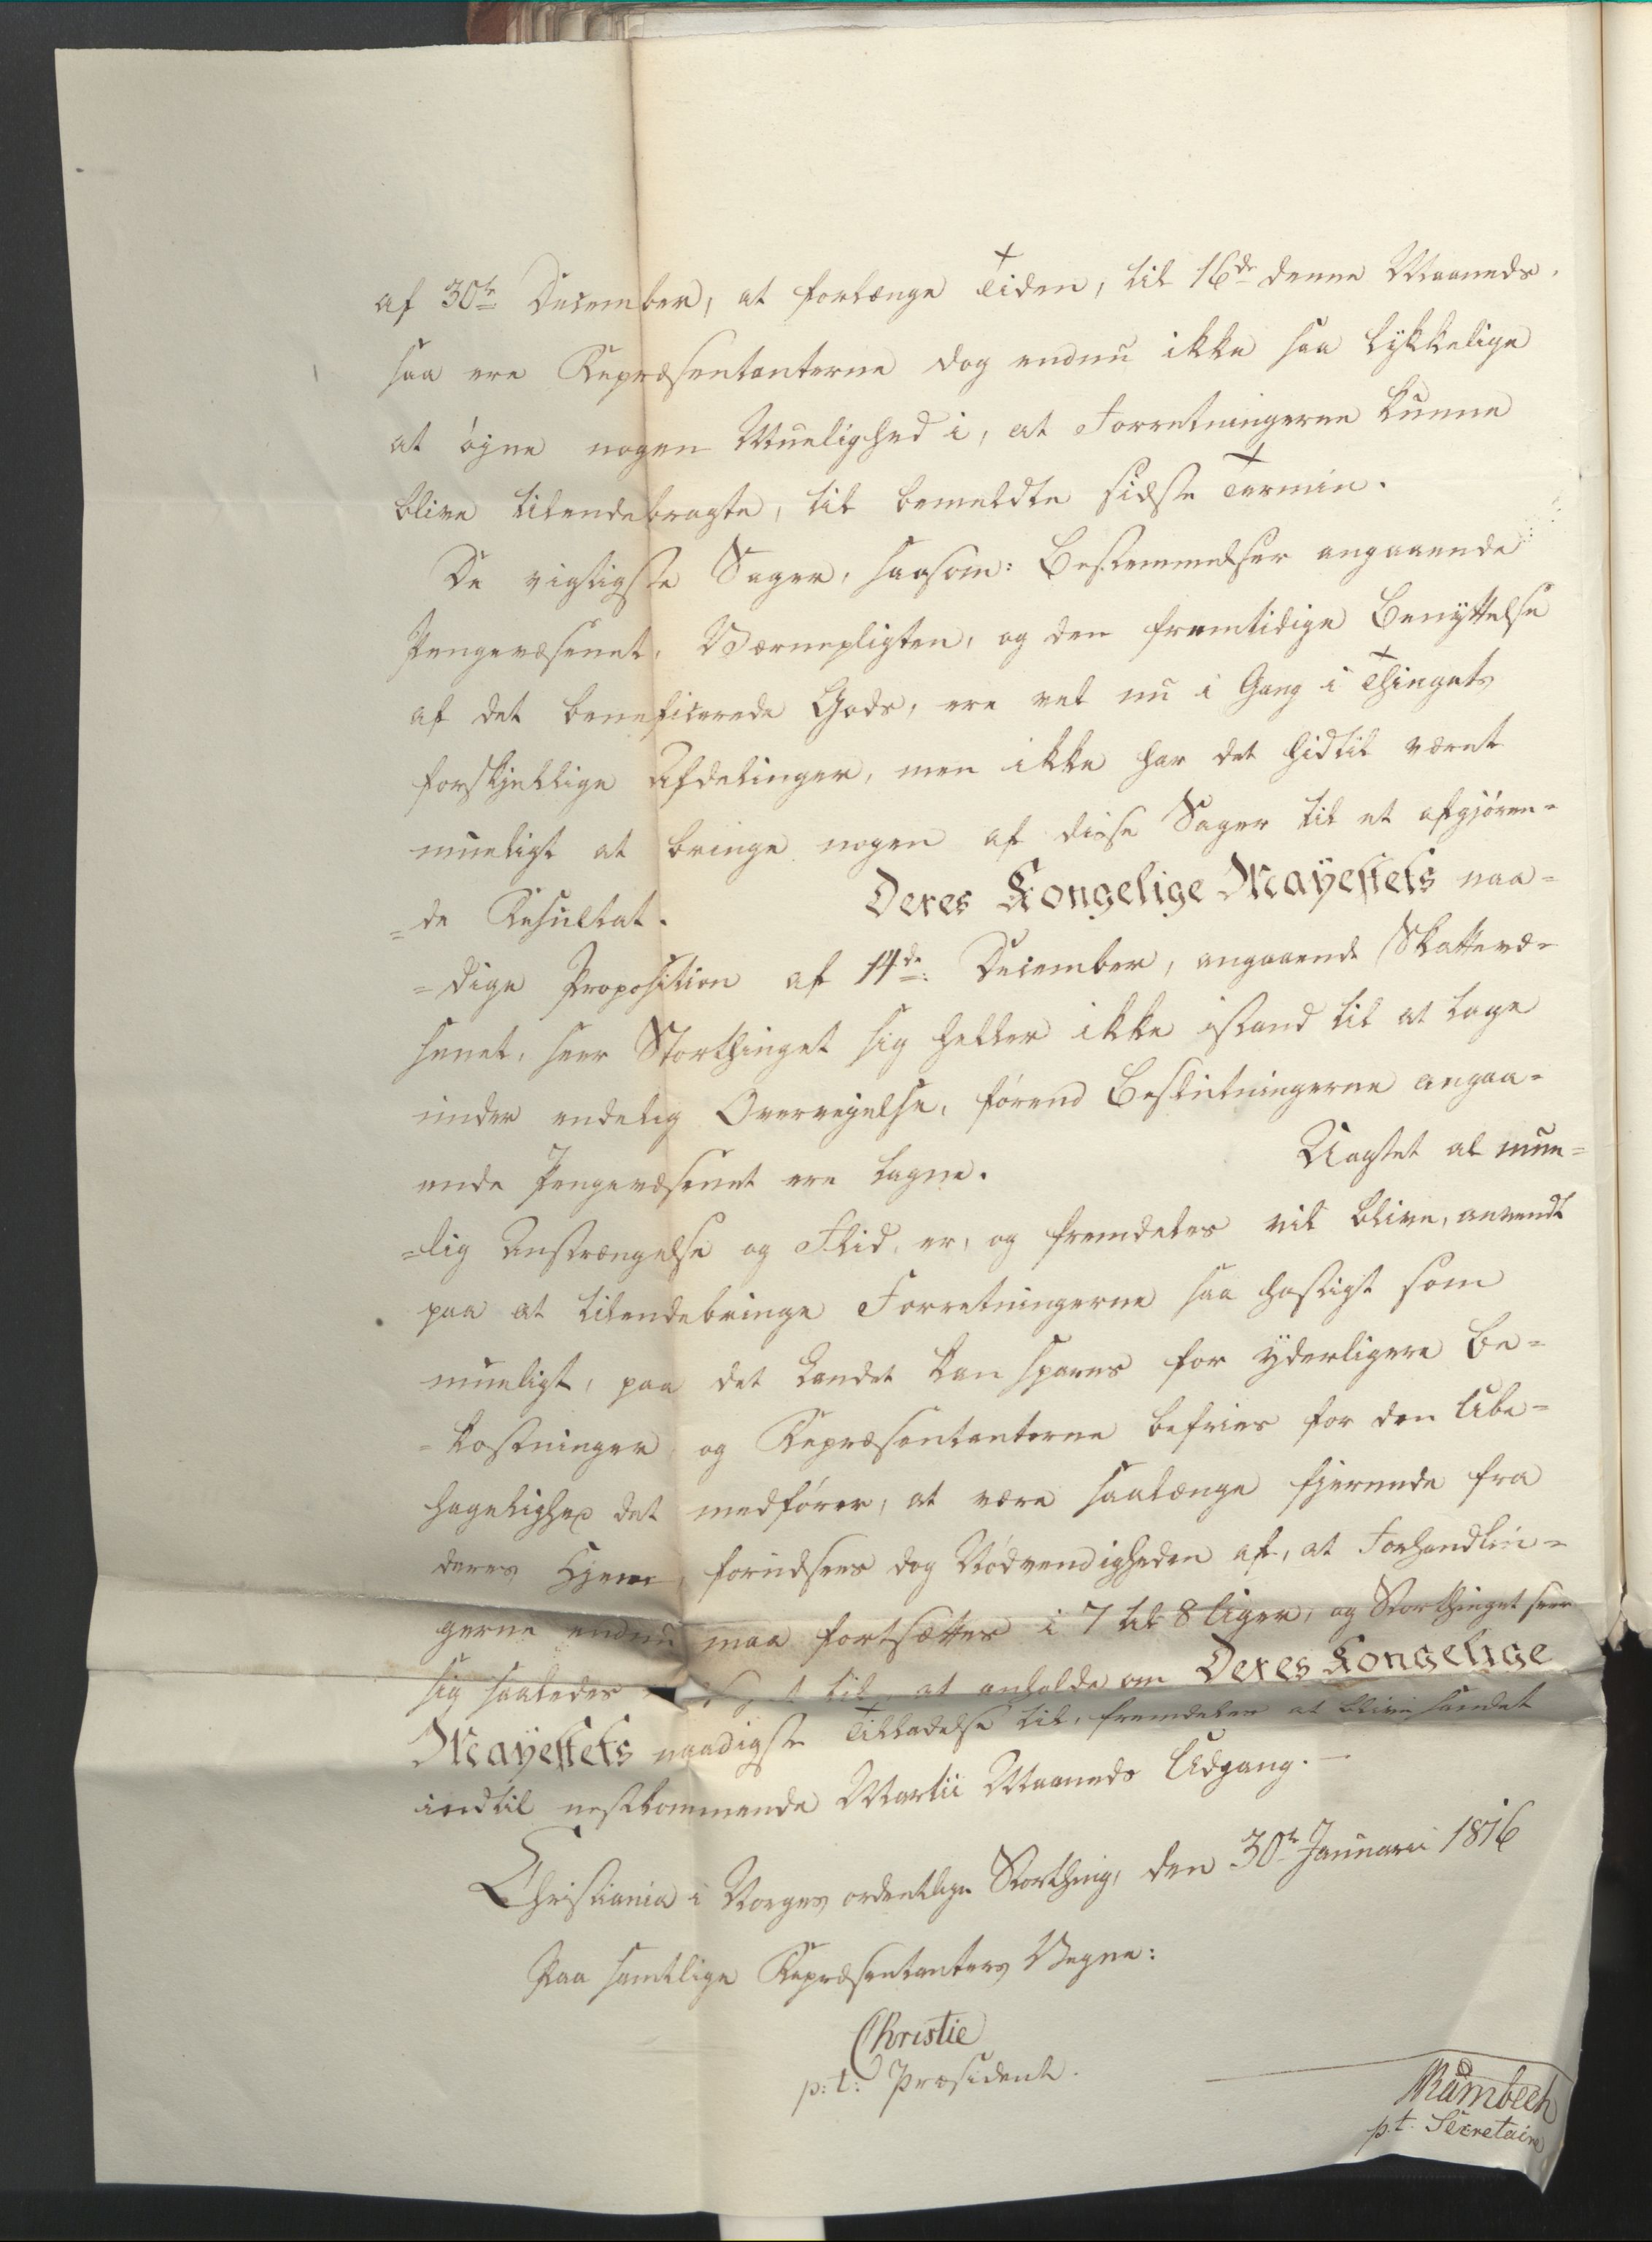 af 30te December, at forlænge Tiden, til 16de denne Maaneds,
saa ere Repræsentanterne dog endnu ikke saa lykkelige
at øjne nogen Muelighed i, at Forretningerne kunne
blive tilendebragte, til bemeldte sidste Termin.
De vigtigste Sager, saasom: Bestemmelser angaaende
Pengevæsenet, Værnepligten, og den fremtidige Benyttelse
af det beneficerede Gods, ere vel nu i Gang i Thingets
forskjellige Afdelinger, men ikke har det hidtil været
mueligt at bringe nogen af disse Sager til et afgjøren=
=de Resultat.
Deres Kongelige Mayestets naa=
=dige Proposition af 14de: December, angaaende Skattevæ=
senet, seer Storthinget sig heller ikke istand til at tage
under endelig Overvejelse, førend Beslutningerne angaa=
ende Pengevæsenet ere tagne.
Uagtet al mue=
=lig Anstrængelse og Flid, er, og fremdeles vil blive, anvendt
paa at tilendebringe Forretningerne saa hastigt som
mueligt, paa det Landet kan spares for yderligere Be=
=kostninger og Repræsentanterne befries for den Ube=
hagelighed det medfører, at være saalænge fjernede fra
deres Hjem, forudsees dog Nødvendigheden af, at Forhandlin=
gerne endnu maa fortsættes i 7 til 8 Uger, og Storthinget seer
sig saaledes til at anholde om Deres Kongelige
Mayestets naadigste Tilladelse til, fremdeles at blive samlet
indtil nestkommende Martii Maaneds Udgang. —
Christiania i Norges ordentlige Storthing, den 30te Januarii 1816
Paa samtlige Repræsentanters Vegne:
Christie
p: t: Præsident.
Rambech
p. t. Secretaire